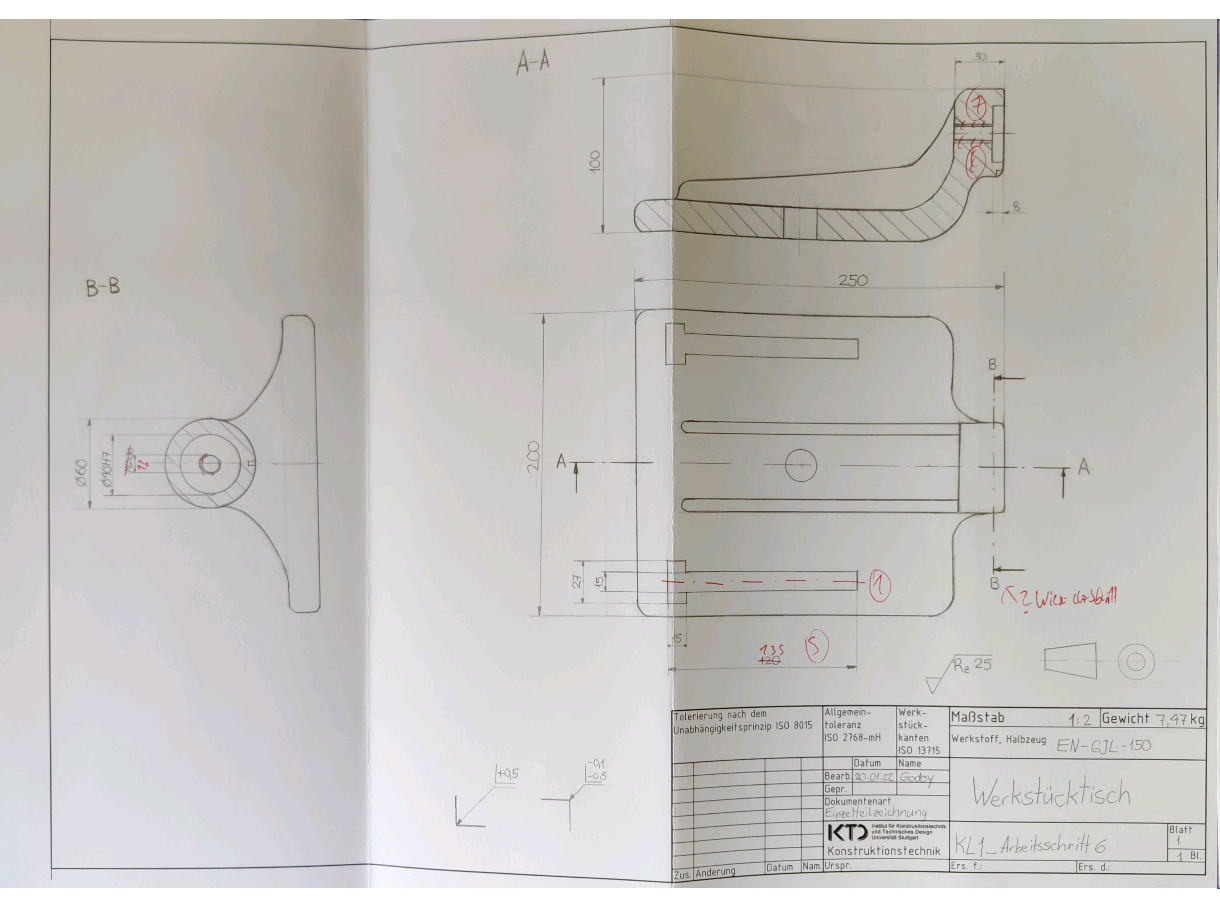 A-A
30
7
100
8
B-B
250
B
200
A
A
Ø60
Ø40H7
12
27
15
1
B
15
135
120
5
Rz 25
+0,5
-0,1
-0,5
Tolerierung nach dem
Unabhängigkeitsprinzip ISO 8015
Allgemein-
toleranz
ISO 2768-mH
Werk-
stück-
kanten
ISO 13715
Maßstab 1:2 Gewicht 7,47 kg
Werkstoff, Halbzeug EN-GJL-150
Datum Name
Bearb. 20.01.22 Godby
Gepr.
Dokumentenart
Einzelteilzeichnung
Werkstücktisch
KTD Institut für Konstruktionstechnik
und Technisches Design
Universität Stuttgart
Konstruktionstechnik
KL1_Arbeitsschritt 6
Blatt
1
1 Bl.
Zus. Änderung Datum Nam. Urspr. Ers. f.: Ers. d.: